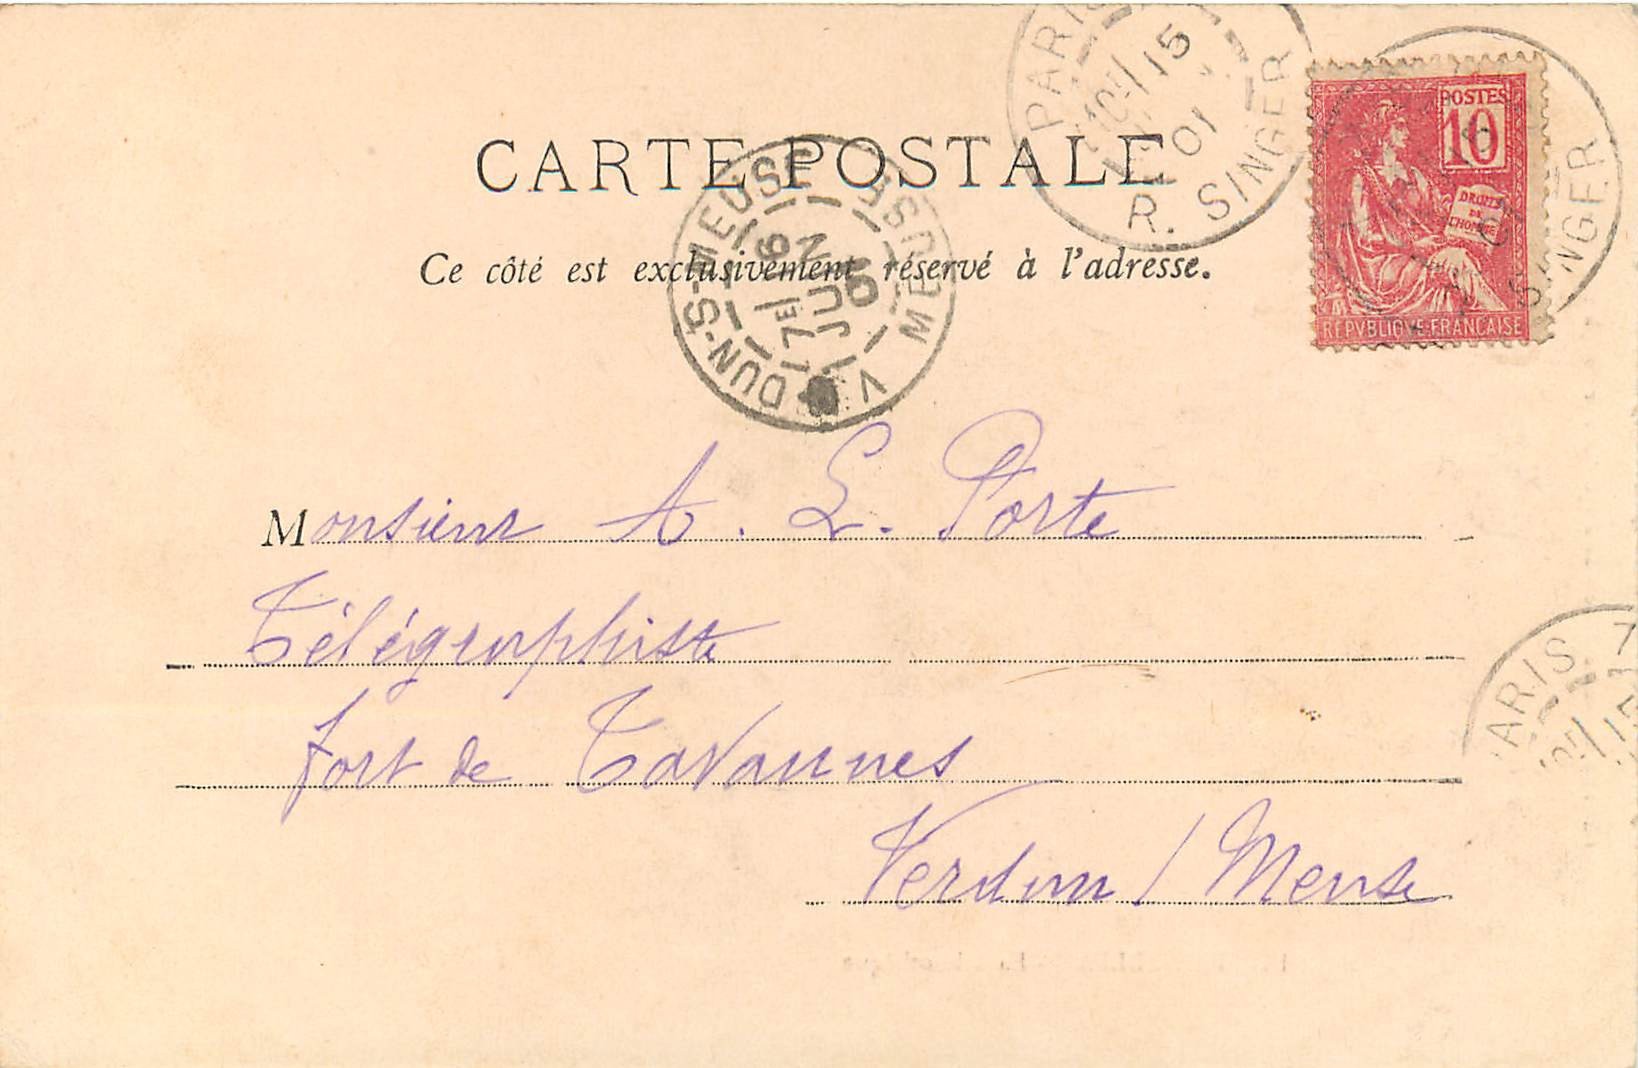 CARTE POSTALE
Ce côté est exclusivement réservé à l'adresse.
PARIS
15
01
R. SINGER
POSTES
10
DROITS
DE
L'HOMME
REPVBLIQVE FRANÇAISE
SINGER
DUN-S-MEUSE
MEUSE
7E
16
JUIN
Monsieur A. L. Porte
Télégraphiste
fort de Tavannes
Verdun / Meuse
PARIS 7
15